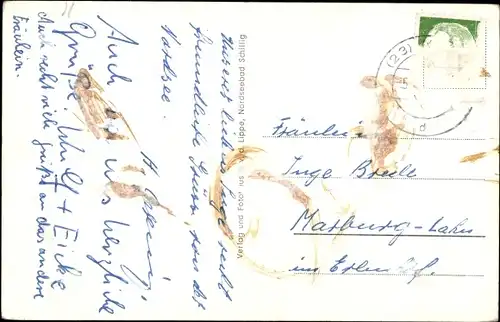 Unserer lieben Inge recht
freundliche Grüsse von der
Nordsee.
H.
Auch von uns herzliche
Grüße. Wolf + Eike
Auch recht viele Grüße an das andere
Fräulein.
Verlag und Foto: Lippe, Nordseebad Schillig
(23)
Fräulein
Inge Breile
Marburg-Lahn
im